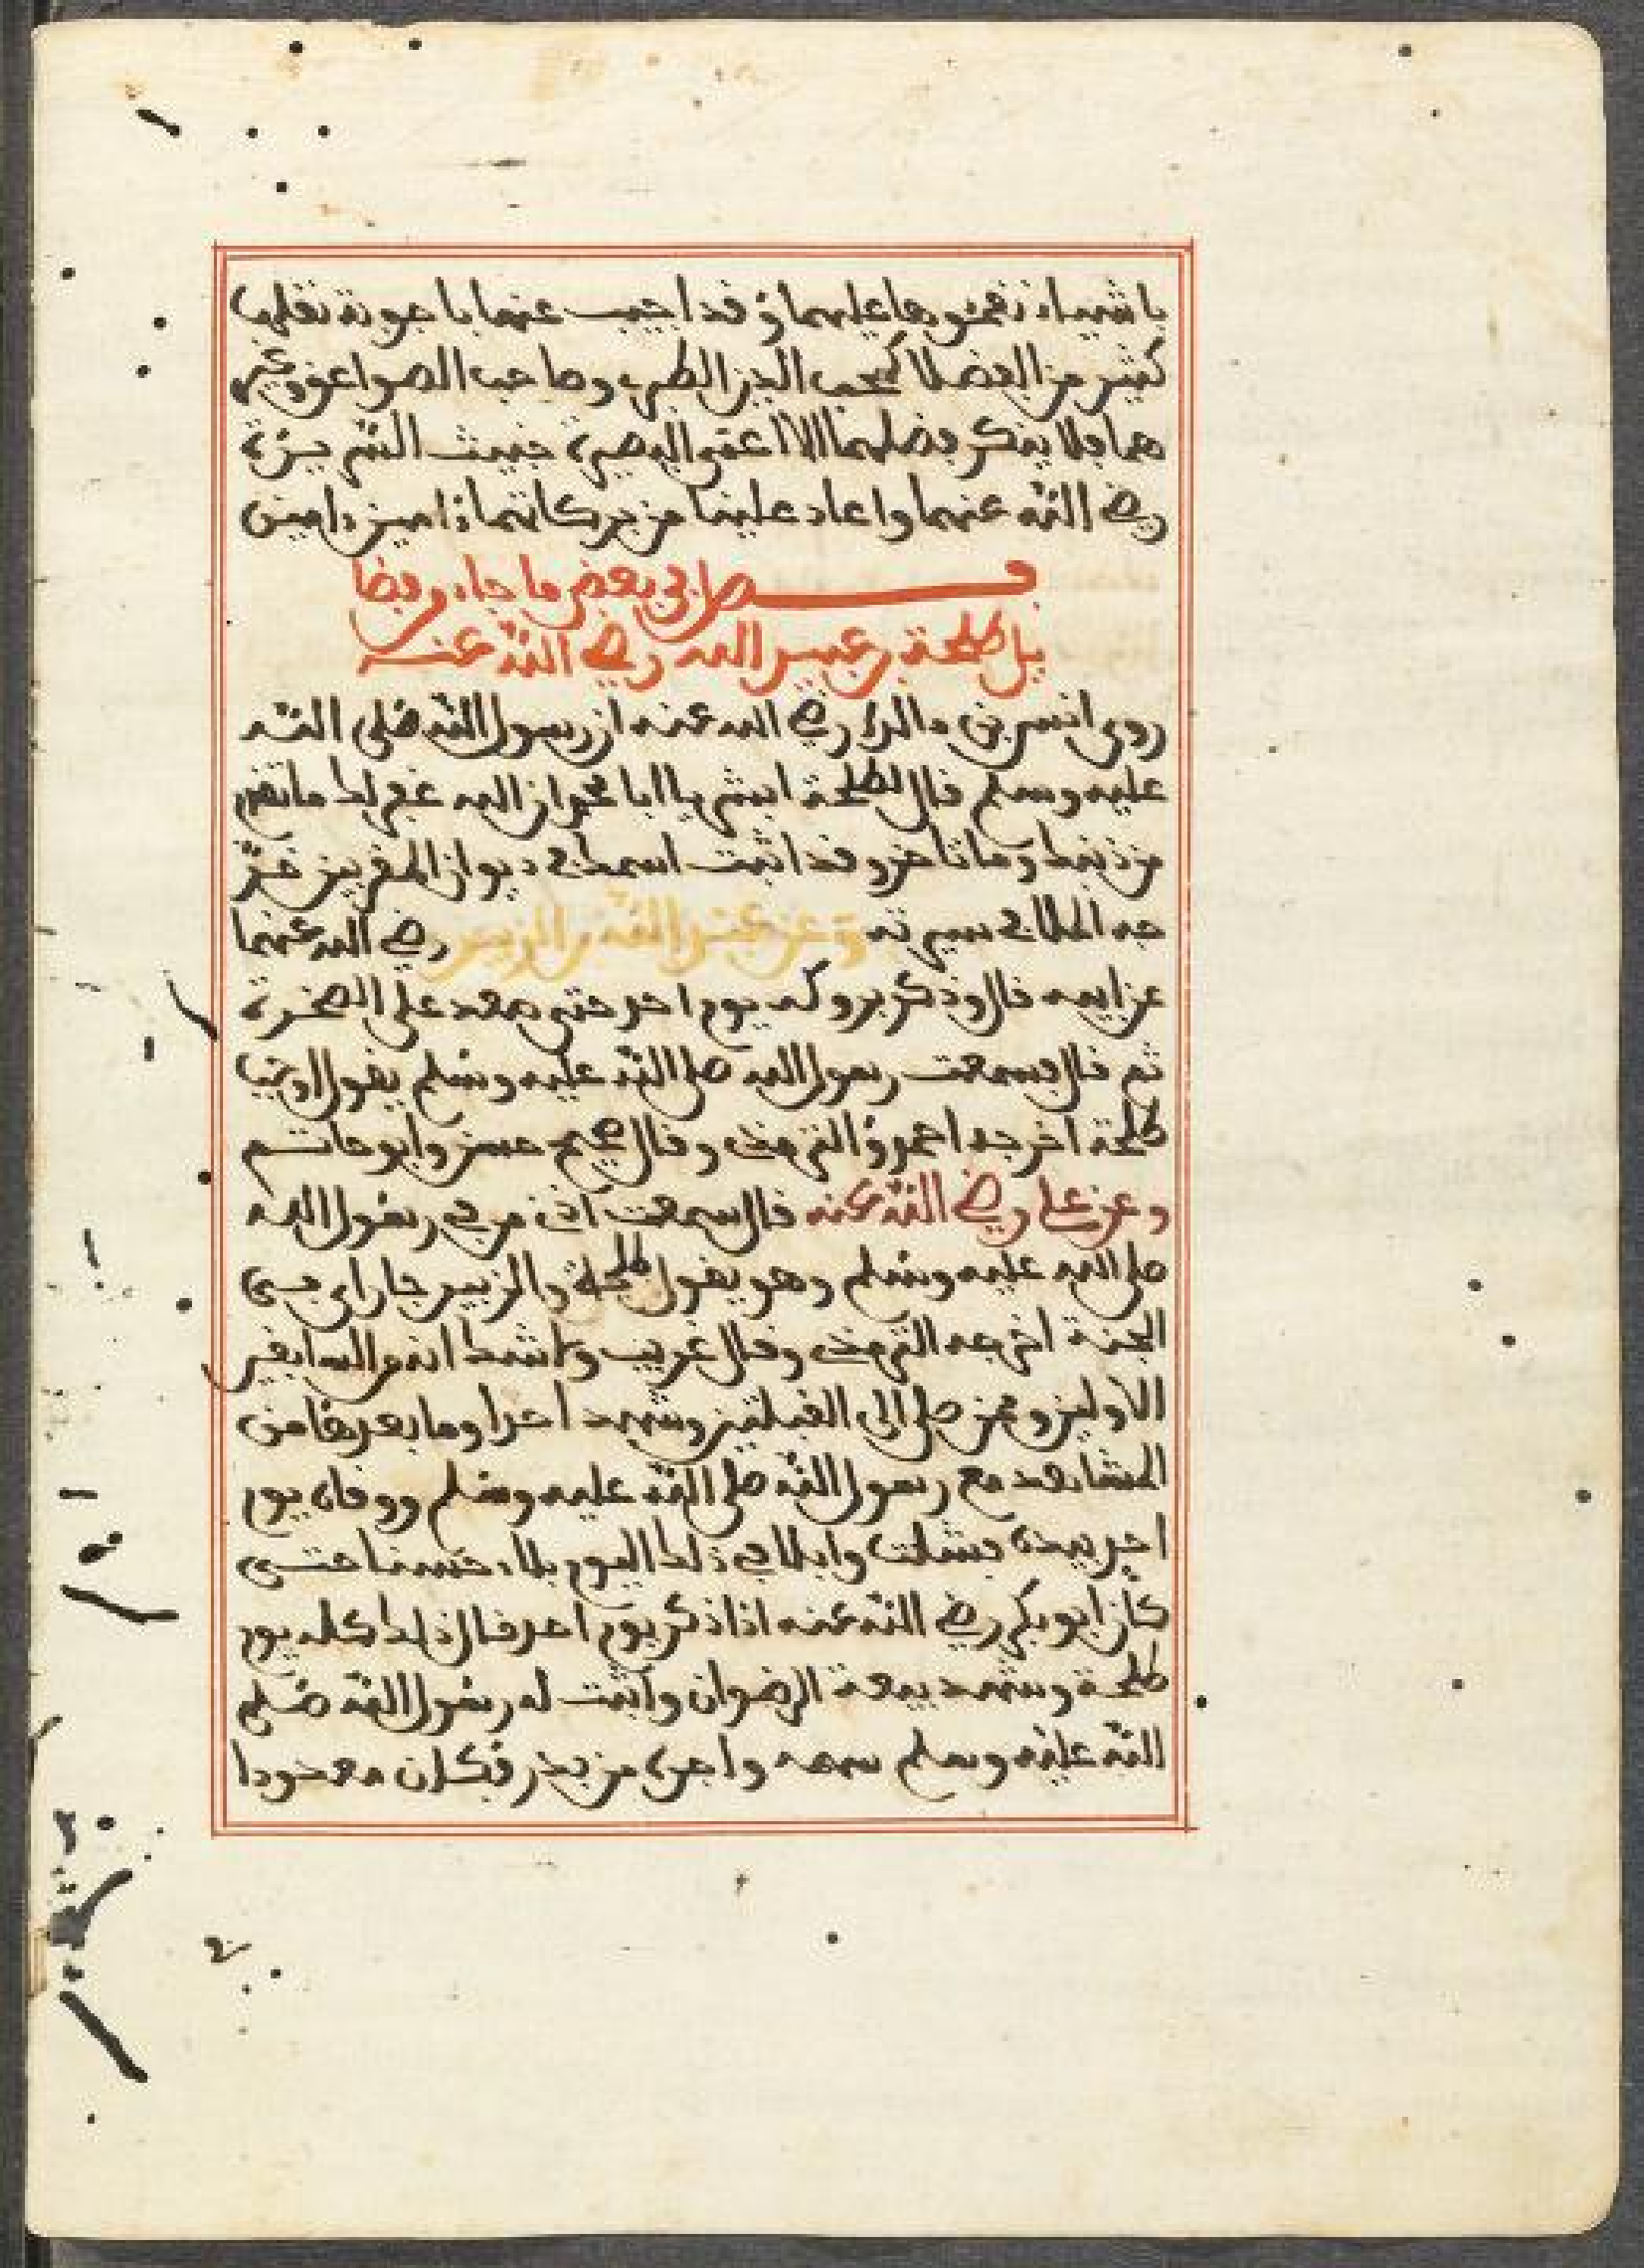 باشياء نقموها عليهما وقد اجيب عنها باجوبة نقلها
كثير من الفضلا كمحب الدين الطبري وصاحب الصواعق وغير
هما ولا ينكر فضلهما الا اعمى البصيرة خبيث السريرة
رضي الله عنهما واعاد علينا من بركاتهما ءامين ءامين
فصل في بعض ما جاء في فضا
يل طلحة بن عبيد الله رضي الله عنه
روى انس بن مالك رضي الله عنه ان رسول الله صلى الله
عليه وسلم قال لطلحة ابشر يا ابا محمد ان الله غفر لك ما تقدم
من ذنبك وما تاخر وقد اثبت اسمك في ديوان المقربين خر
جه الملا في سيرته وعن عبد الله بن الزبير رضي الله عنهما
عن ابيه قال وذكر بروكه يوم احد حتى صعد على الصخرة
ثم قال فسمعت رسول الله صلى الله عليه وسلم يقول اوجب
طلحة اخرجه احمد والترمذي وقال صحيح حسن وابو حاتم
وعن علي رضي الله عنه قال سمعت اذني من في رسول الله
صلى الله عليه وسلم وهو يقول طلحة والزبير جاراي في
الجنة اخرجه الترمذي وقال غريب وانه من السابقين
الاولين وممن صلى الى القبلتين وشهد احدا وما بعدها من
المشاهد مع رسول الله صلى الله عليه وسلم ووقاه يوم
احد بيده فشلت وابلا في ذلك اليوم بلاء حسنا حتى
كان ابو بكر رضي الله عنه اذا ذكر يوم احد قال ذلك كله يوم
طلحة وشهد بيعة الرضوان واثبت له رسول الله صلى
الله عليه وسلم سهمه واجره من بدر فكان معدودا